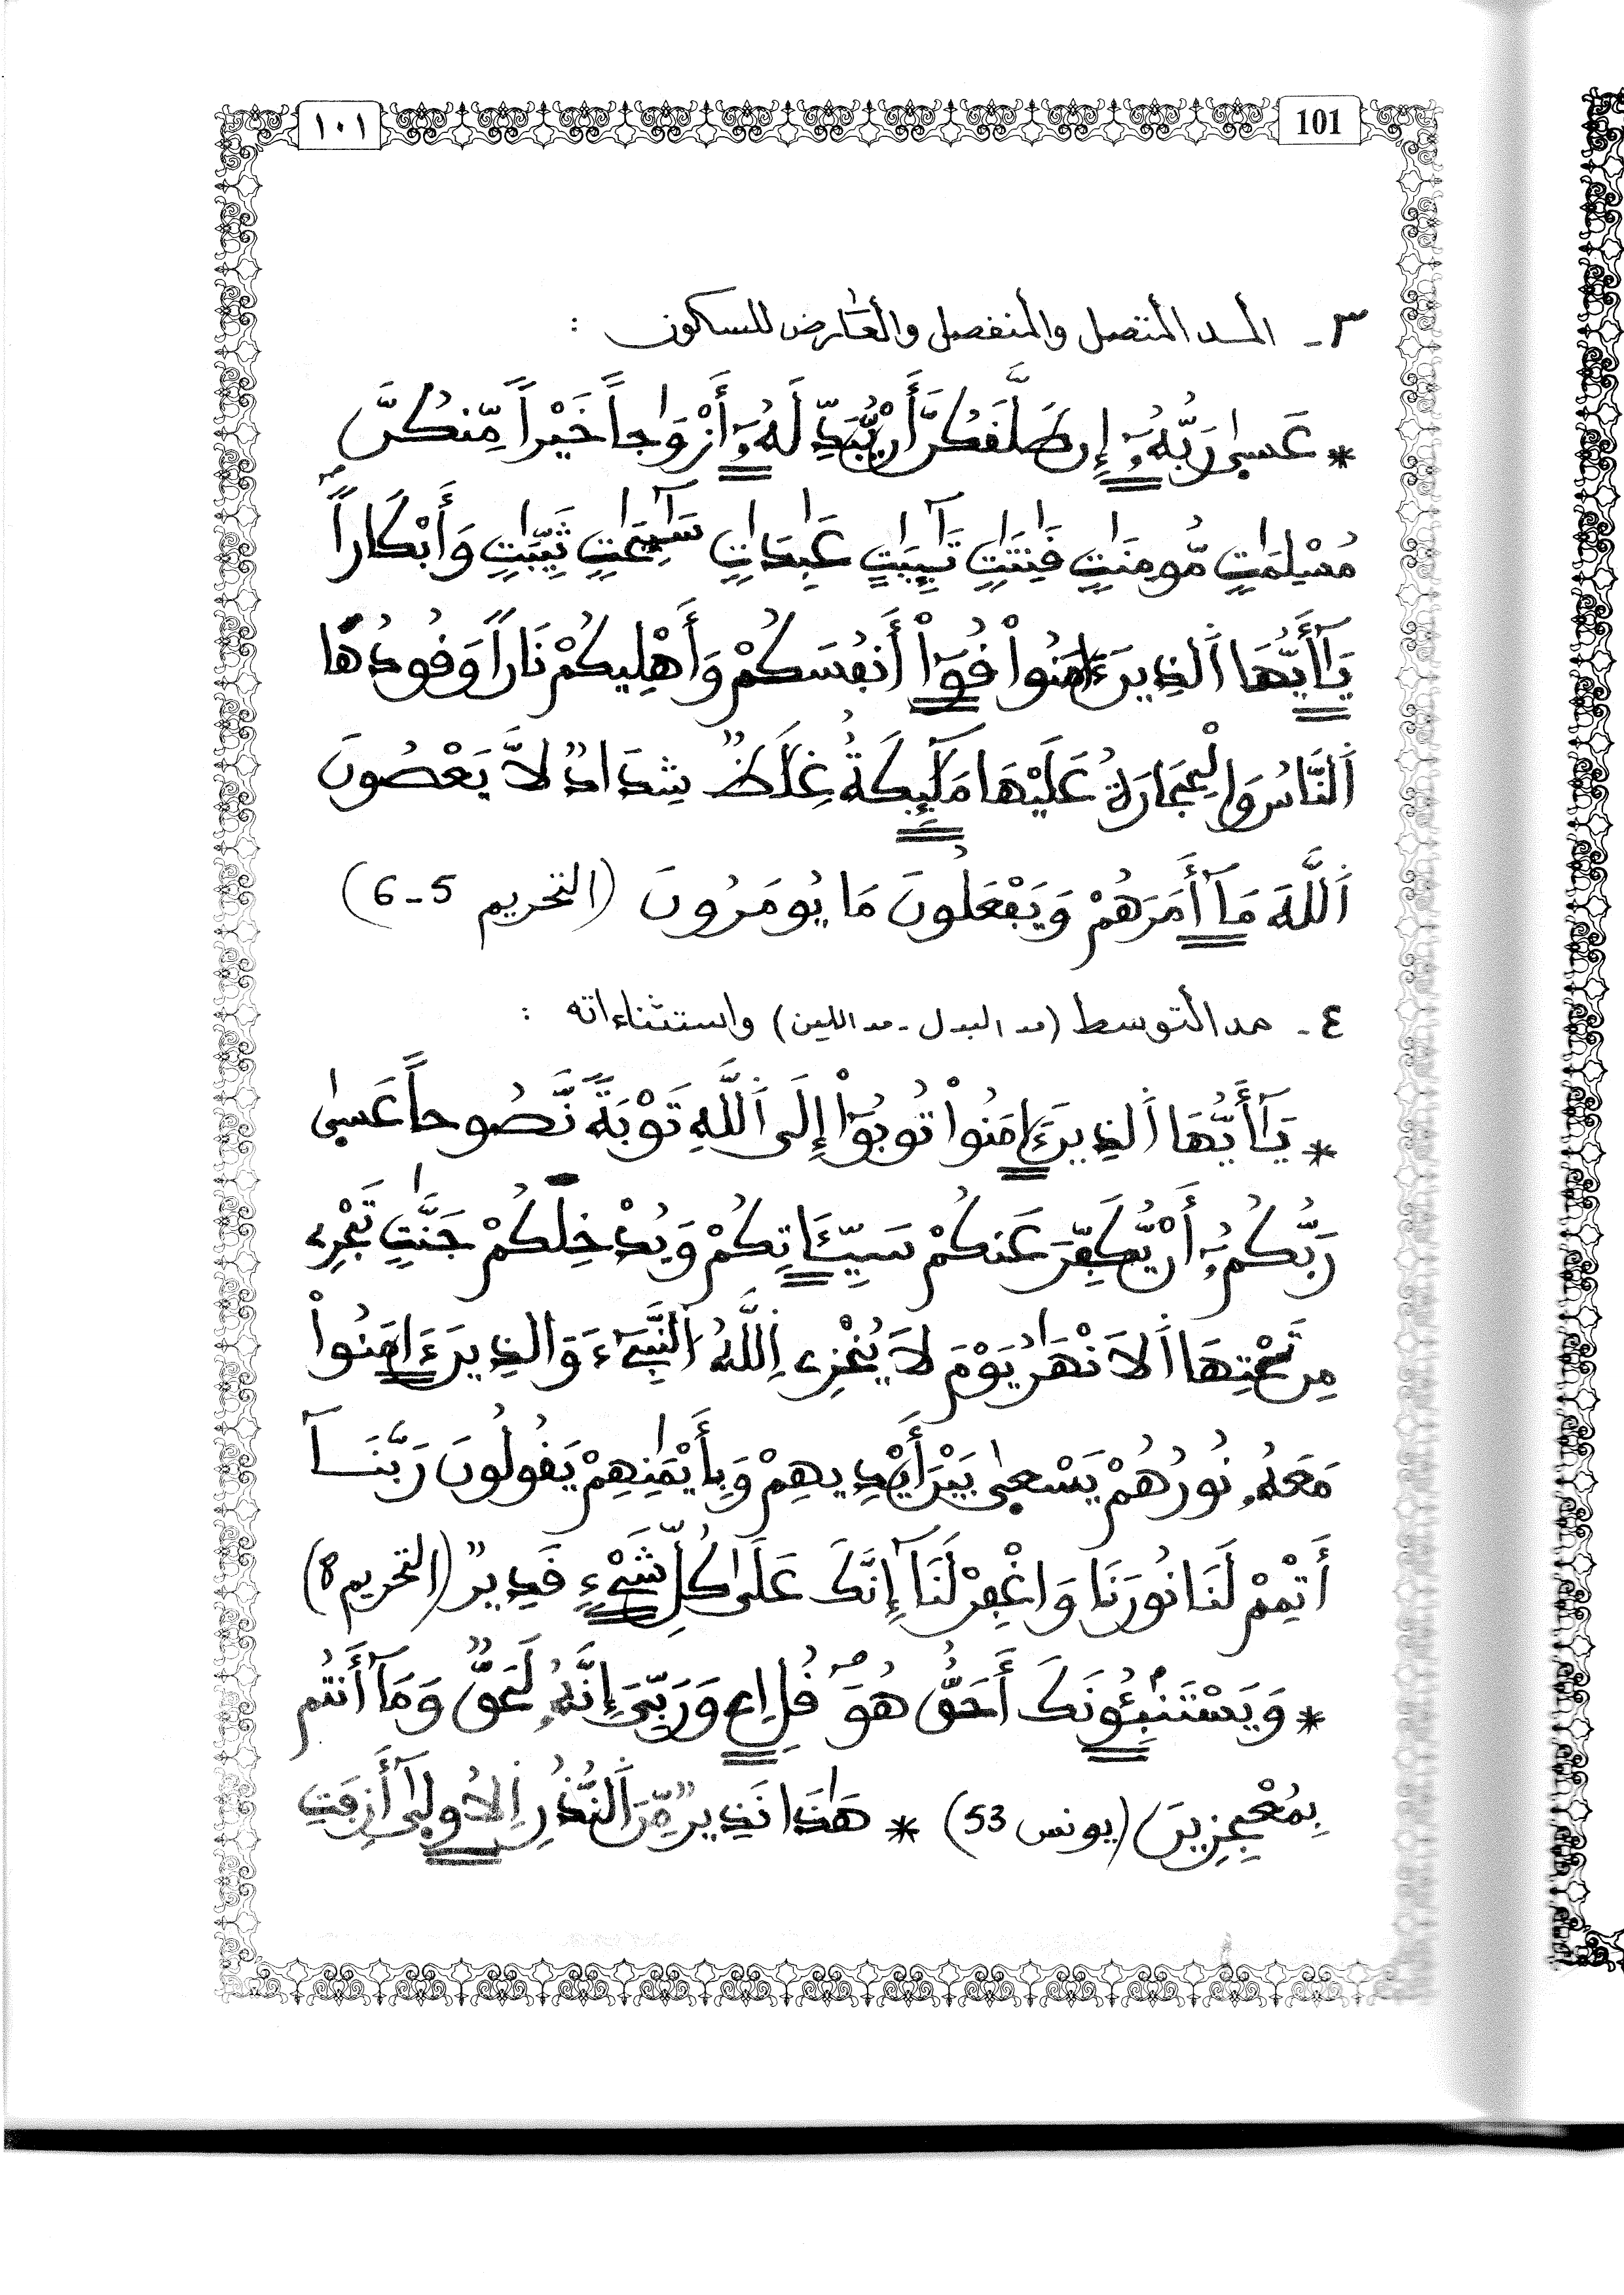 ١٠١ 101
٣- المد المتصل والمنفصل والعارض للسكون :
* عَسىٰ رَبُّهُۥٓ إِن طَلَّفَكُنَّ أَنْ يُّبَدِّلَهُۥٓ أَزْوَٰجاً خَيْراً مِّنكُنَّ
مُسْلِمَٰتٍ مُّومِنَٰتٍ فَٰنِتَٰتٍ تَٰٓئِبَٰتٍ عَٰبِدَٰتٍ سَٰٓئِحَٰتٍ ثَيِّبَٰتٍ وَأَبْكَاراً
يَٰٓأَيُّهَا اَلذِينَ ءَامَنُواْ فُوٓاْ أَنفُسَكُمْ وَأَهْلِيكُمْ نَاراً وَفُودُهَا
اَلنَّاسُ وَالْحِجَارَةُ عَلَيْهَا مَلَٰٓئِكَةٌ غِلَاظٌ شِدَادٌ لاَّ يَعْصُونَ
اَللَّهَ مَآ أَمَرَهُمْ وَيَفْعَلُونَ مَا يُومَرُونَ (التحريم 5-6)
٤- مد التوسط (مد البدل - مد اللين) واستثناءاته :
* يَٰٓأَيُّهَا اَلذِينَ ءَامَنُواْ تُوبُوٓاْ إِلَى اَللَّهِ تَوْبَةً نَّصُوحاً عَسىٰ
رَبُّكُمُۥٓ أَنْ يُّكَفِّرَ عَنكُمْ سَيِّـَٔاتِكُمْ وَيُدْخِلَكُمْ جَنَّٰتٍ تَجْرِے
مِن تَحْتِهَا اَلَانْهَٰرُ يَوْمَ لَا يُخْزِے اِللَّهُ اُلنَّبِيٓءَ وَالذِينَ ءَامَنُواْ
مَعَهُۥ نُورُهُمْ يَسْعىٰ بَيْنَ أَيْدِيهِمْ وَبِأَيْمَٰنِهِمْ يَفُولُونَ رَبَّنَآ
أَتْمِمْ لَنَا نُورَنَا وَاغْفِرْ لَنَآ إِنَّكَ عَلَىٰ كُلِّ شَيْءٍ فَدِيرٌ (التحريم 8)
* وَيَسْتَنۢبِـُٔونَكَ أَحَقٌّ هُوَ فُلِ اِے وَرَبِّيَ إِنَّهُۥ لَحَقٌّ وَمَآ أَنتُم
بِمُعْجِزِينَ (يونس 53) * هَٰذَا نَذِيرٌ مِّنَ اَلنُّذُرِ اِلُاولىٰٓ أَزِفَتِ